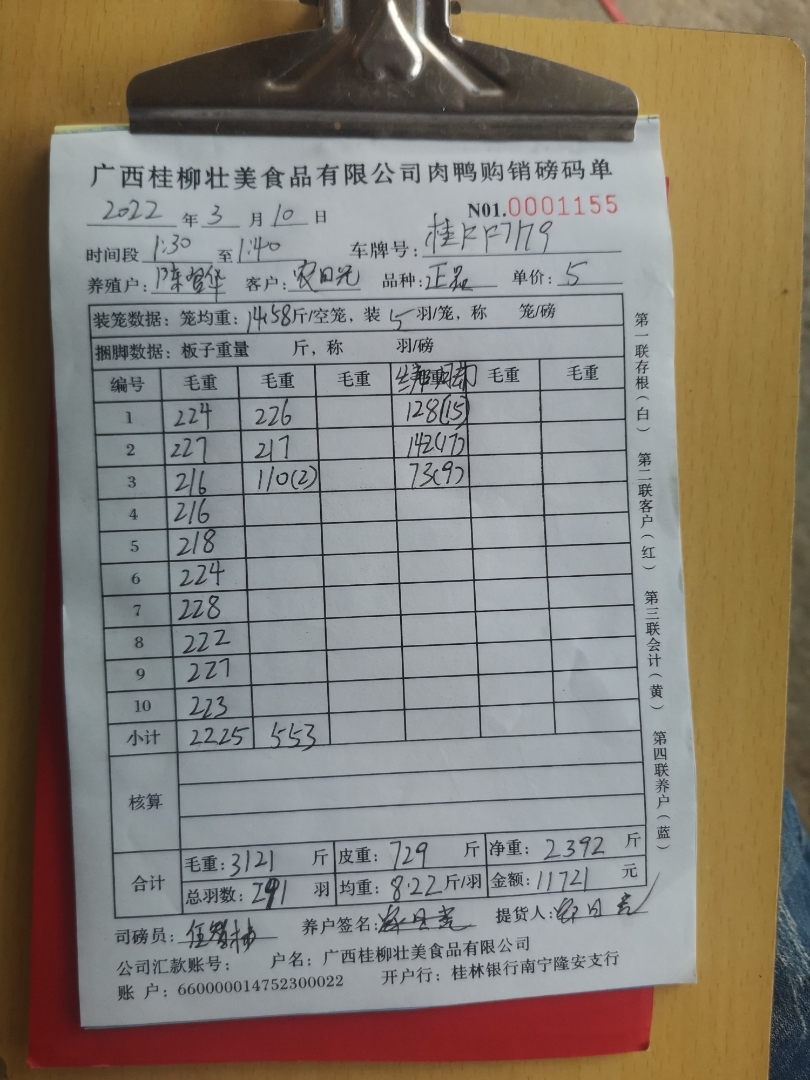 广西桂柳壮美食品有限公司肉鸭购销磅码单
2022 年 3 月 10 日 N01.0001155
时间段 1:30 至 1:40 车牌号: 桂FF7179
养殖户: 陈智华 客户: 农日光 品种: 正品 单价: 5
装笼数据: 笼均重: 14.58斤/空笼, 装 5 羽/笼, 称 笼/磅
捆脚数据: 板子重量 斤, 称 羽/磅
编号 毛重 毛重 毛重 毛重 毛重
1 224 226 128(15)
2 227 217 142(17)
3 216 110(2) 73(9)
4 216
5 218
6 224
7 228
8 222
9 227
10 223
小计 2225 553
核算
合计 毛重: 3121 斤 皮重: 729 斤 净重: 2392 斤
总羽数: 291 羽 均重: 8.22 斤/羽 金额: 11721 元
司磅员: 养户签名: 提货人: 农日光
公司汇款账号: 户名: 广西桂柳壮美食品有限公司
账 户: 660000014752300022 开户行: 桂林银行南宁隆安支行
第一联存根(白) 第二联客户(红) 第三联会计(黄) 第四联养户(蓝)